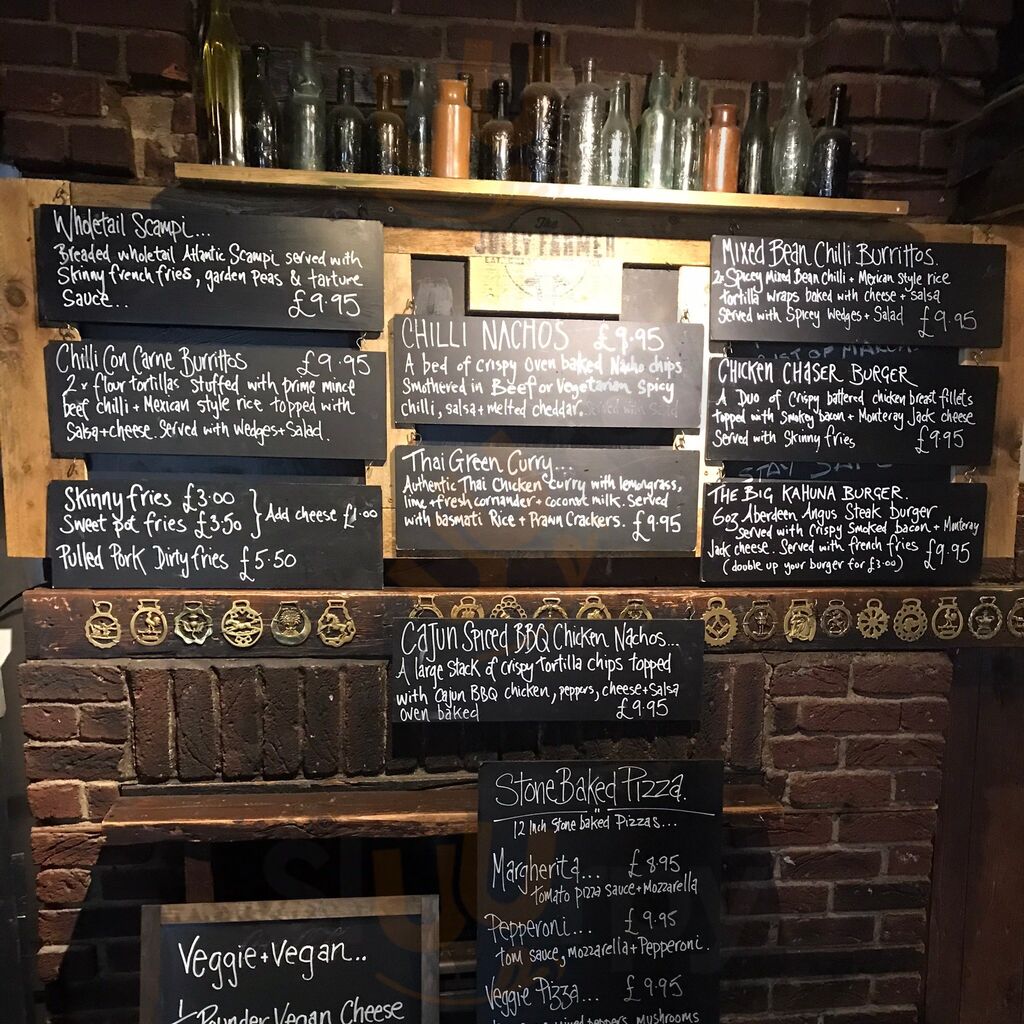 The
JOLLY FARMER
Wholetail Scampi...
Breaded wholetail Atlantic Scampi served with
Skinny french fries, garden Peas & tarture
Sauce... £9.95
Chilli Con Carne Burrittos £9.95
2 x flour tortillas stuffed with prime mince
beef chilli + Mexican style rice topped with
Salsa + cheese. Served with wedges + Salad.
Skinny fries £3.00
Sweet pot fries £3.50 } Add cheese £1.00
Pulled Pork Dirty fries £5.50
CHILLI NACHOS £9.95
A bed of crispy oven baked Nacho chips
Smothered in Beef or Vegetarian Spicy
chilli, salsa + melted cheddar. Served with Salad
Thai Green Curry...
Authentic Thai Chicken curry with lemongrass,
lime + fresh corriander + coconut milk. Served
with basmati Rice + Prawn Crackers. £9.95
Mixed Bean Chilli Burrittos.
2x Spicey Mixed Bean Chilli + Mexican Style rice
tortilla wraps baked with cheese + salsa
Served with Spicey wedges + Salad £9.95
CHICKEN CHASER BURGER
A Duo of Crispy battered chicken breast fillets
topped with smokey bacon + Monteray Jack cheese
Served with Skinny fries £9.95
STAY SAFE
THE BIG KAHUNA BURGER.
6oz Aberdeen Angus Steak Burger
served with Crispy Smoked bacon + Monteray
Jack cheese. Served with french fries £9.95
(double up your burger for £3.00)
Cajun Spiced BBQ Chicken Nachos...
A large stack of crispy tortilla chips topped
with Cajun BBQ chicken, peppers, cheese + Salsa
Oven baked £9.95
Stone Baked Pizza.
12 Inch Stone baked Pizzas...
Margherita... £8.95
tomato pizza sauce + Mozzarella
Pepperoni... £9.95
tom sauce, mozzarella + Pepperoni.
Veggie Pizza... £9.95
Mixed peppers, mushrooms
Veggie + Vegan..
1/4 Pounder Vegan Cheese